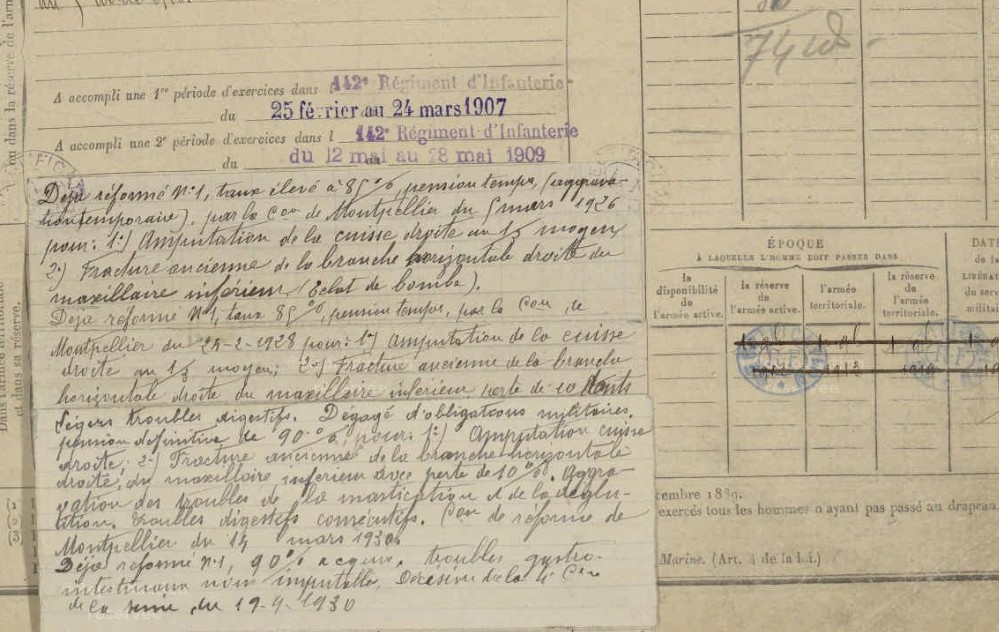 ou dans la réserve de l'arm
Dans l'armée territoriale
et dans sa réserve.
A accompli une 1re période d'exercices dans 142e Régiment d'Infanterie
du 25 février au 24 mars 1907
A accompli une 2e période d'exercices dans l 142e Régiment d'Infanterie
du 12 mai au 28 mai 1909
Déjà réformé N°1, taux élevé à 85%, pension temp., (aggrava-
tion temporaire), par la Con de Montpellier du 5 mars 1926
pour: 1°) Amputation de la cuisse droite au 1/3 moyen
2°) Fracture ancienne de la branche horizontale droite du
maxillaire inférieur (Eclat de bombe).
Déjà réformé N°1, taux 85%, pension temp., par la Con de
Montpellier du 24-2-1928 pour: 1°) Amputation de la cuisse
droite au 1/3 moyen; 2°) Fracture ancienne de la branche
horizontale droite du maxillaire inférieur perte de 10 dents
Légers troubles digestifs. Dégagé d'obligations militaires.
pension définitive de 90% pour: 1°) Amputation cuisse
droite; 2°) Fracture ancienne de la branche horizontale
droite, du maxillaire inférieur avec perte de 10%. Aggra-
vation des troubles de la mastication et de la déglu-
tition. Troubles digestifs consécutifs. Con de réforme de
Montpellier du 14 mars 1930.
Déjà réformé N°1, 90% acquis, troubles gastro-
intestinaux non imputable. Décision de la Con
de la du 19-4-1930
7428
ÉPOQUE
À LAQUELLE L'HOMME DOIT PASSER DANS
la disponibilité de l'armée active.
la réserve de l'armée active.
l'armée territoriale.
la réserve de l'armée territoriale.
DATE
de la
LIBÉRAT
du serv
militai
R.F.
cembre 1889.
exercés tous les hommes n'ayant pas passé au drapeau
Marine. (Art. 4 de la loi.)